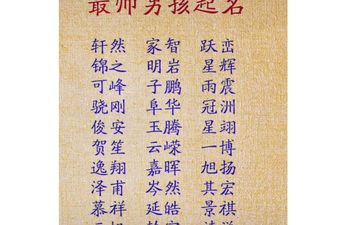 最帅男孩起名
轩然 家智 跃峦
锦之 明岩 星辉
可峰 子鹏 雨震
骁刚 阜华 冠洲
俊安 玉腾 星翊
贺笙 云嵘 一博
逸翔 嘉晖 旭扬
泽甫 岑然 其宏
慕祥 延皓 景祺